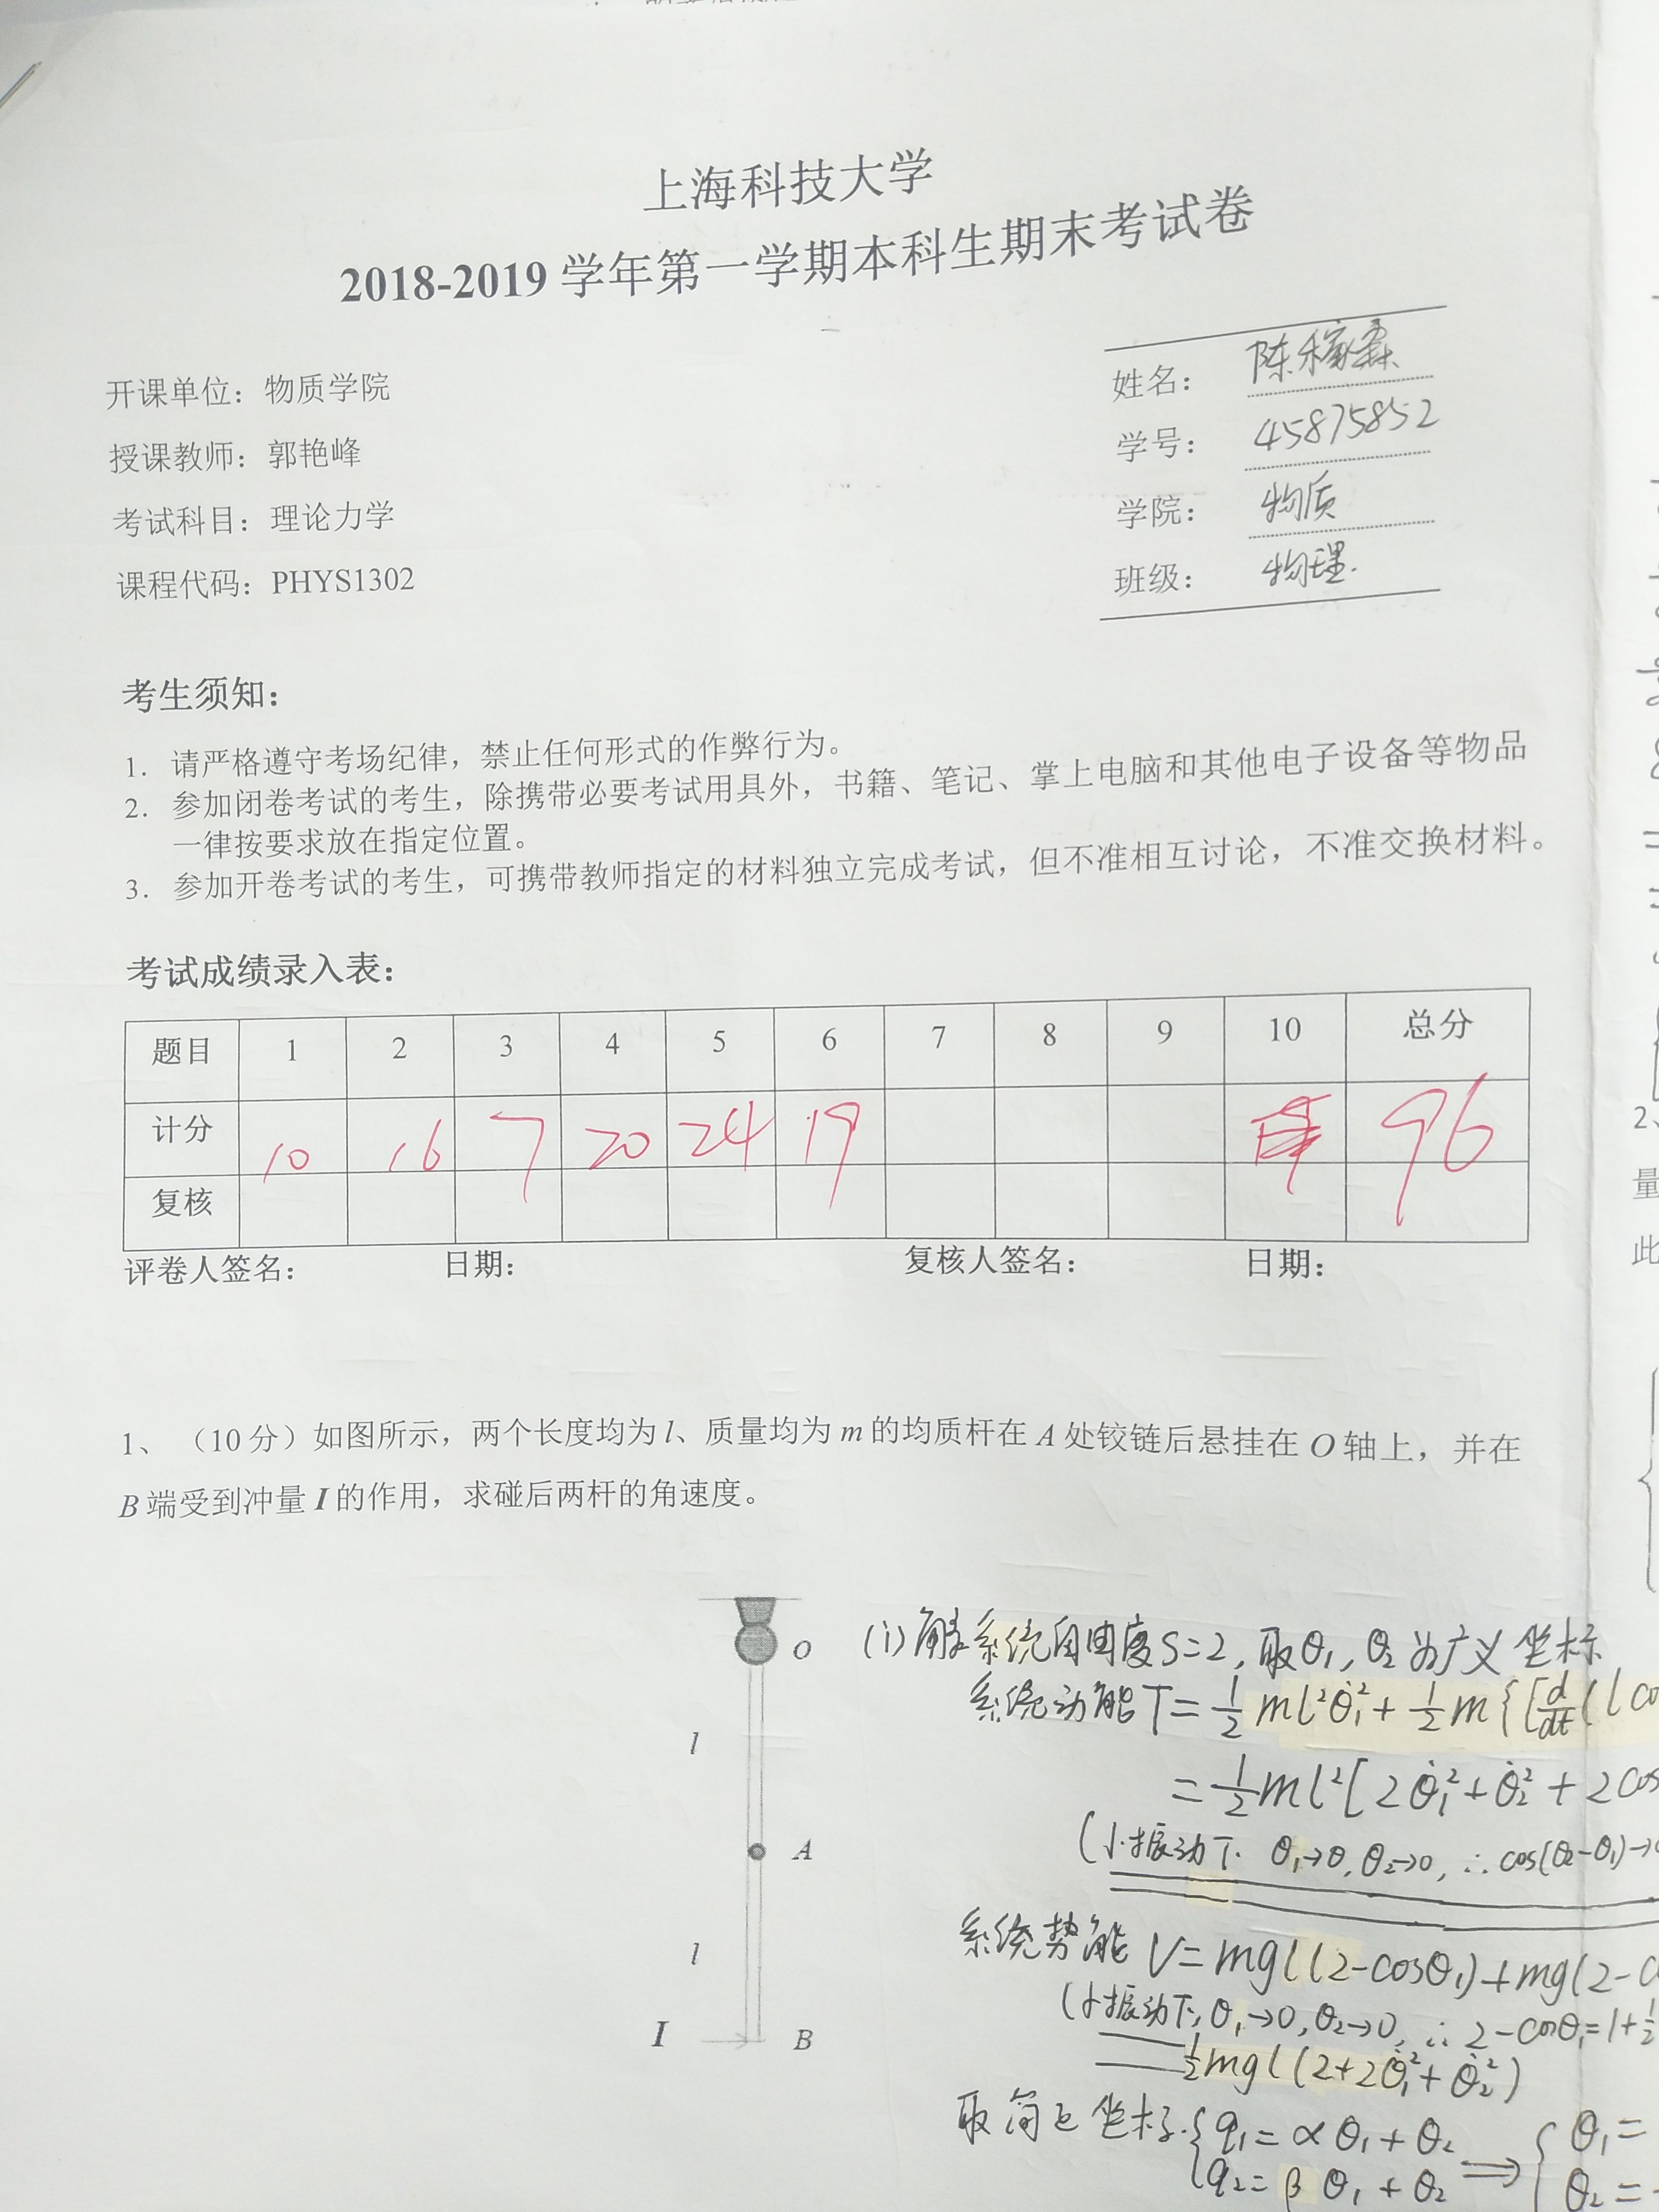 上海科技大学
2018-2019 学年第一学期本科生期末考试卷
开课单位：物质学院
授课教师：郭艳峰
考试科目：理论力学
课程代码：PHYS1302
姓名：陈稼霖
学号：45875852
学院：物质
班级：物理.
考生须知：
1. 请严格遵守考场纪律，禁止任何形式的作弊行为。
2. 参加闭卷考试的考生，除携带必要考试用具外，书籍、笔记、掌上电脑和其他电子设备等物品
一律按要求放在指定位置。
3. 参加开卷考试的考生，可携带教师指定的材料独立完成考试，但不准相互讨论，不准交换材料。
考试成绩录入表：
题目 1 2 3 4 5 6 7 8 9 10 总分
计分 10 16 7 20 24 19 96
复核
评卷人签名： 日期： 复核人签名： 日期：
1、（10 分）如图所示，两个长度均为 l、质量均为 m 的均质杆在 A 处铰链后悬挂在 O 轴上，并在
B 端受到冲量 I 的作用，求碰后两杆的角速度。
O
l
A
l
I
B
(i) 解系统自由度S=2, 取θ₁, θ₂ 为广义坐标
系统动能 T = 1/2 ml²θ̇₁² + 1/2 m{[d/dt(l co
= 1/2 ml²[2θ̇₁² + θ̇₂² + 2cos
(小振动下. θ₁→0, θ₂→0, ∴ cos(θ₂-θ₁)→
系统势能 V = mgl(2-cosθ₁) + mg(2-c
(小振动下, θ₁→0, θ₂→0, ∴ 2-cosθ₁=1+1/2
1/2 mgl(2+2θ̇₁²+θ̇₂²)
取简正坐标. { q₁ = αθ₁ + θ₂
q₂ = βθ₁ + θ₂ ⟹ { θ₁ =
θ₂ =
2、
量
此